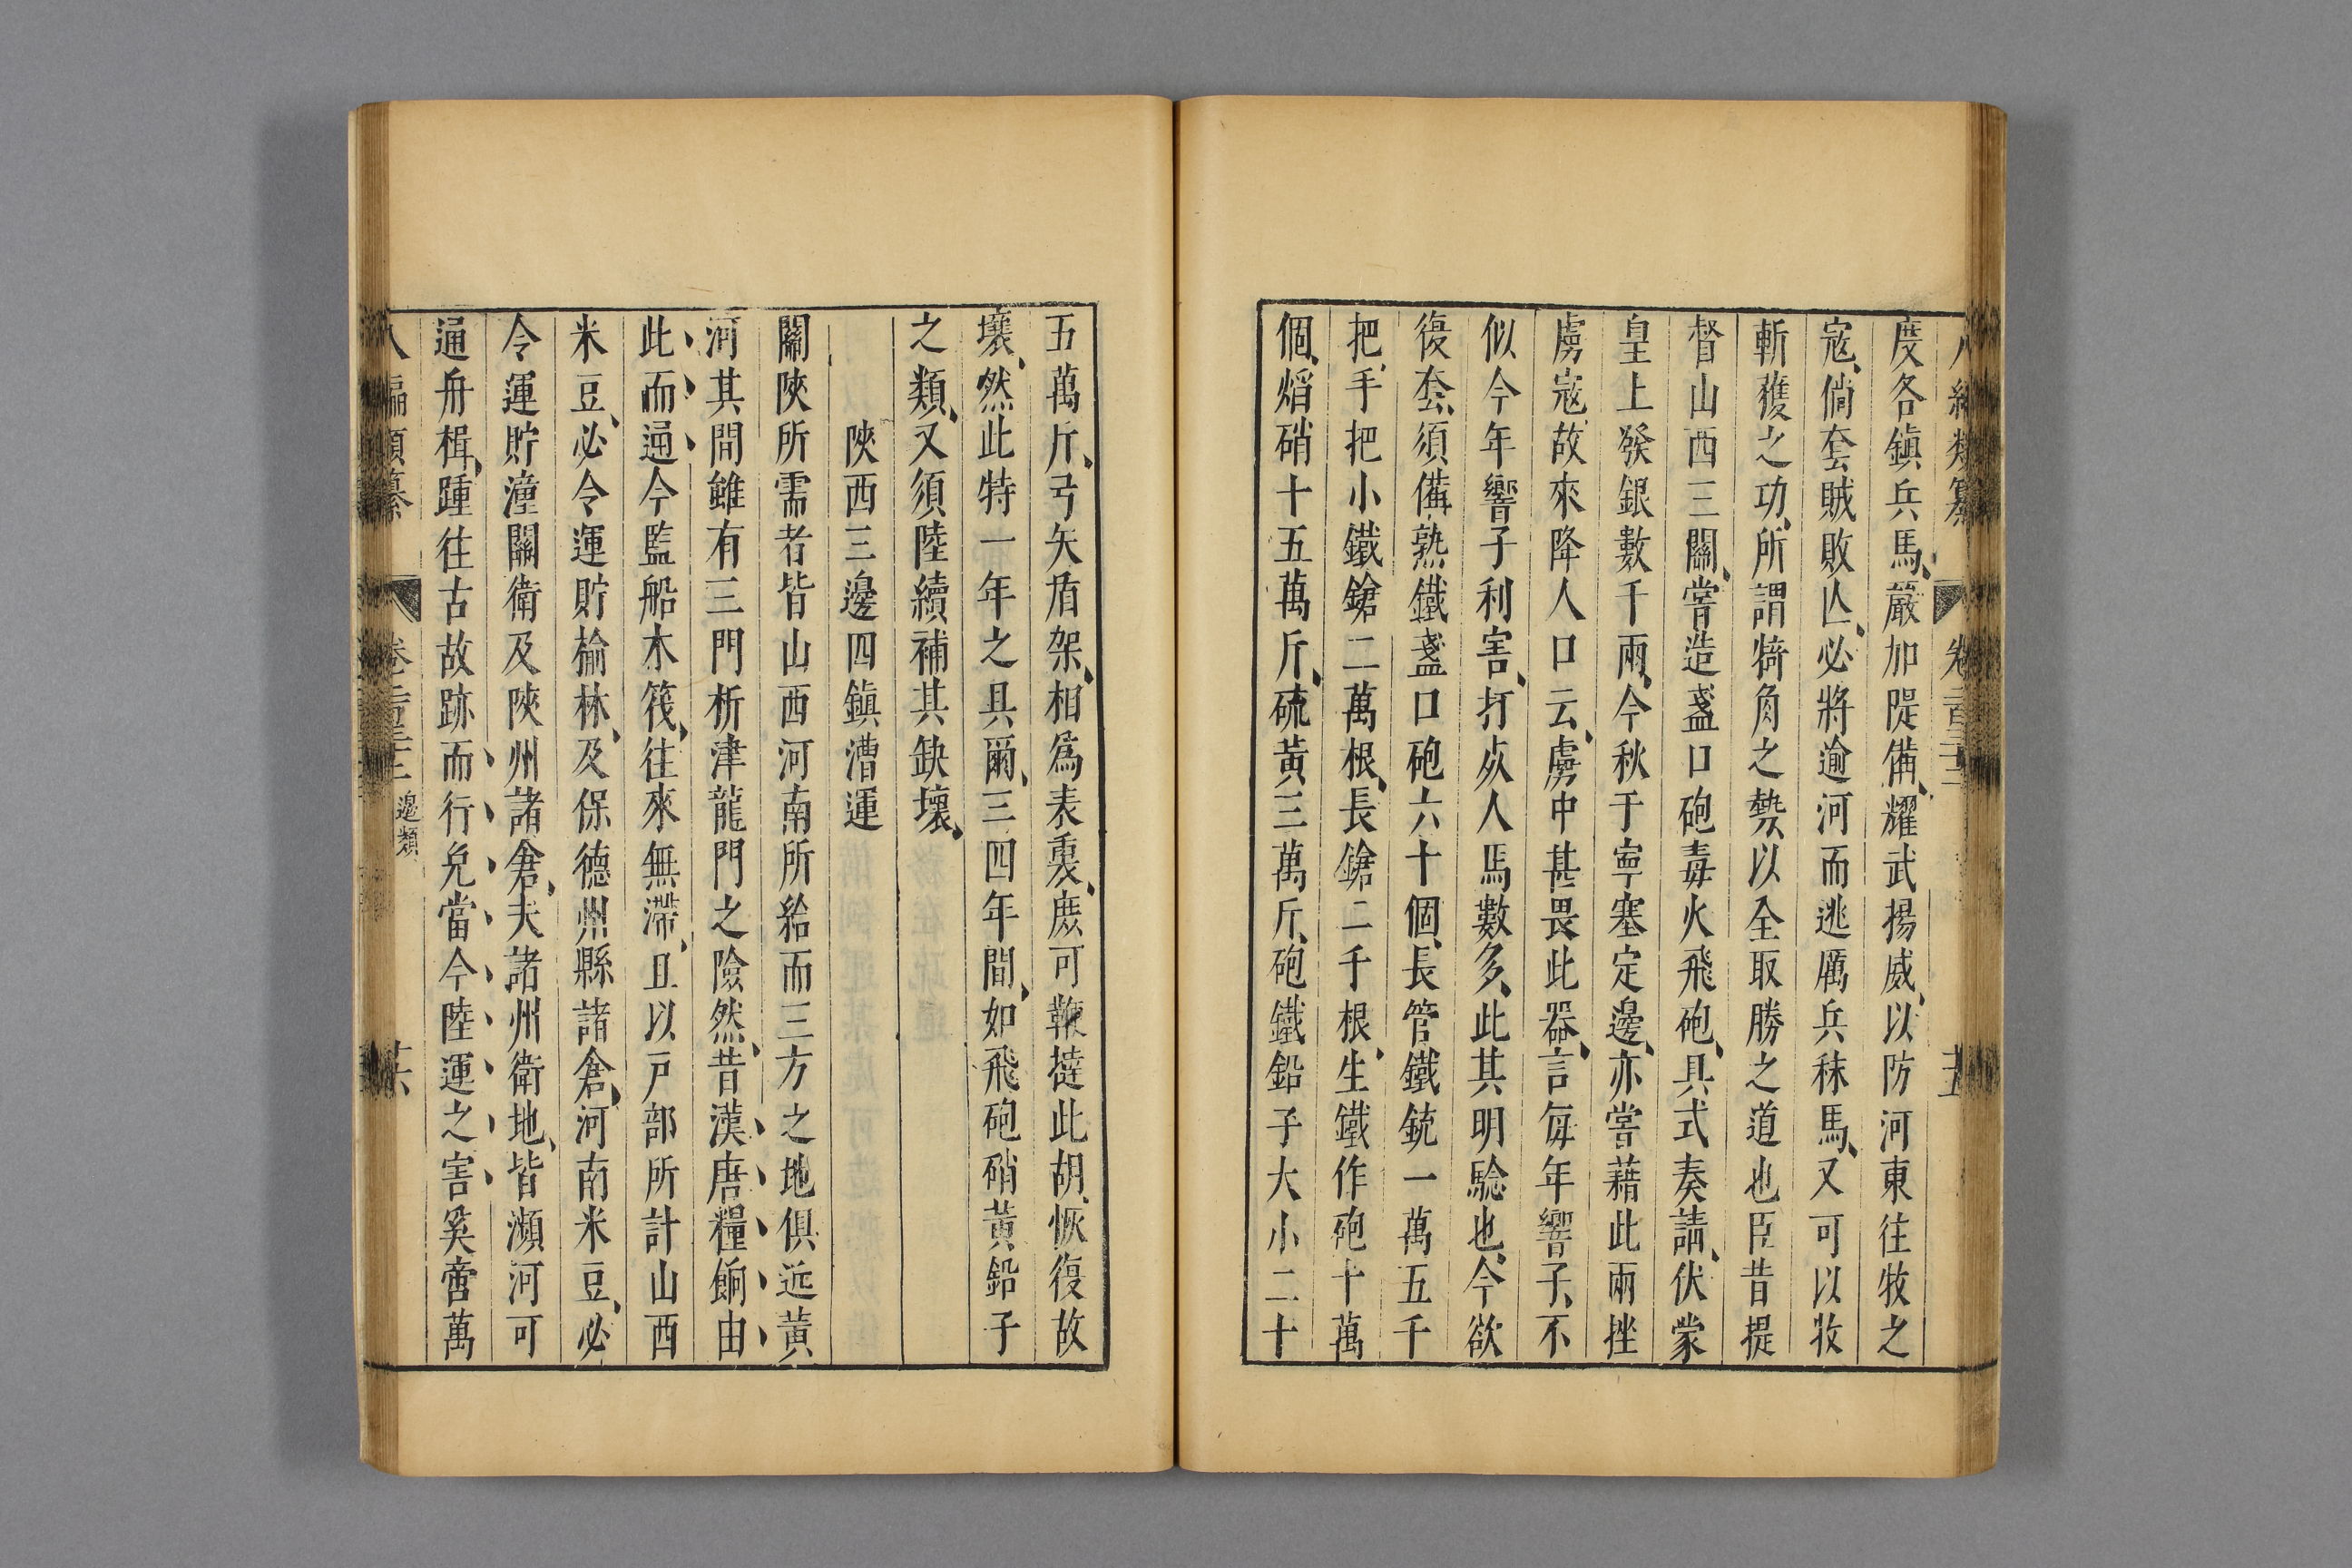 八編類纂 卷二百三十三 十五
度各鎮兵馬嚴加隄備耀武揚威以防河東往牧之
宼倘套賊敗亾必將逾河而逃厲兵秣馬又可以收
斬獲之功所謂犄角之勢以全取勝之道也臣昔提
督山西三關嘗造盞口砲毒火飛砲具式奏請伏蒙
皇上發銀數千兩今秋于寧塞定邊亦嘗藉此兩挫
虜寇故來降人口云虜中甚畏此器言每年響子不
似今年響子利害打㱙人馬數多此其明驗也今欲
復套須備熟鐵盞口砲六十個長管鐵銃一萬五千
把手把小鐵鎗二萬根長鎗二千根生鐵作砲十萬
個焰硝十五萬斤硫黃三萬斤砲鐵鉛子大小二十
五萬斤弓矢盾架相爲表裏庶可鞭撻此胡恢復故
壤然此特一年之具爾三四年間如飛砲硝黃鉛子
之類又須陸續補其缺壞
陝西三邊四鎮漕運
關陝所需者皆山西河南所給而三方之地俱近黃
河其間雖有三門析津龍門之險然昔漢唐糧餉由
此而通今監船木筏往來無滯且以戸部所計山西
米豆必令運貯榆林及保德州縣諸倉河南米豆必
令運貯潼關衛及陝州諸倉夫諸州衛地皆瀕河可
通舟楫踵往古故跡而行免當今陸運之害奚啻萬
八編類纂 卷二百三十三 邊類 十六